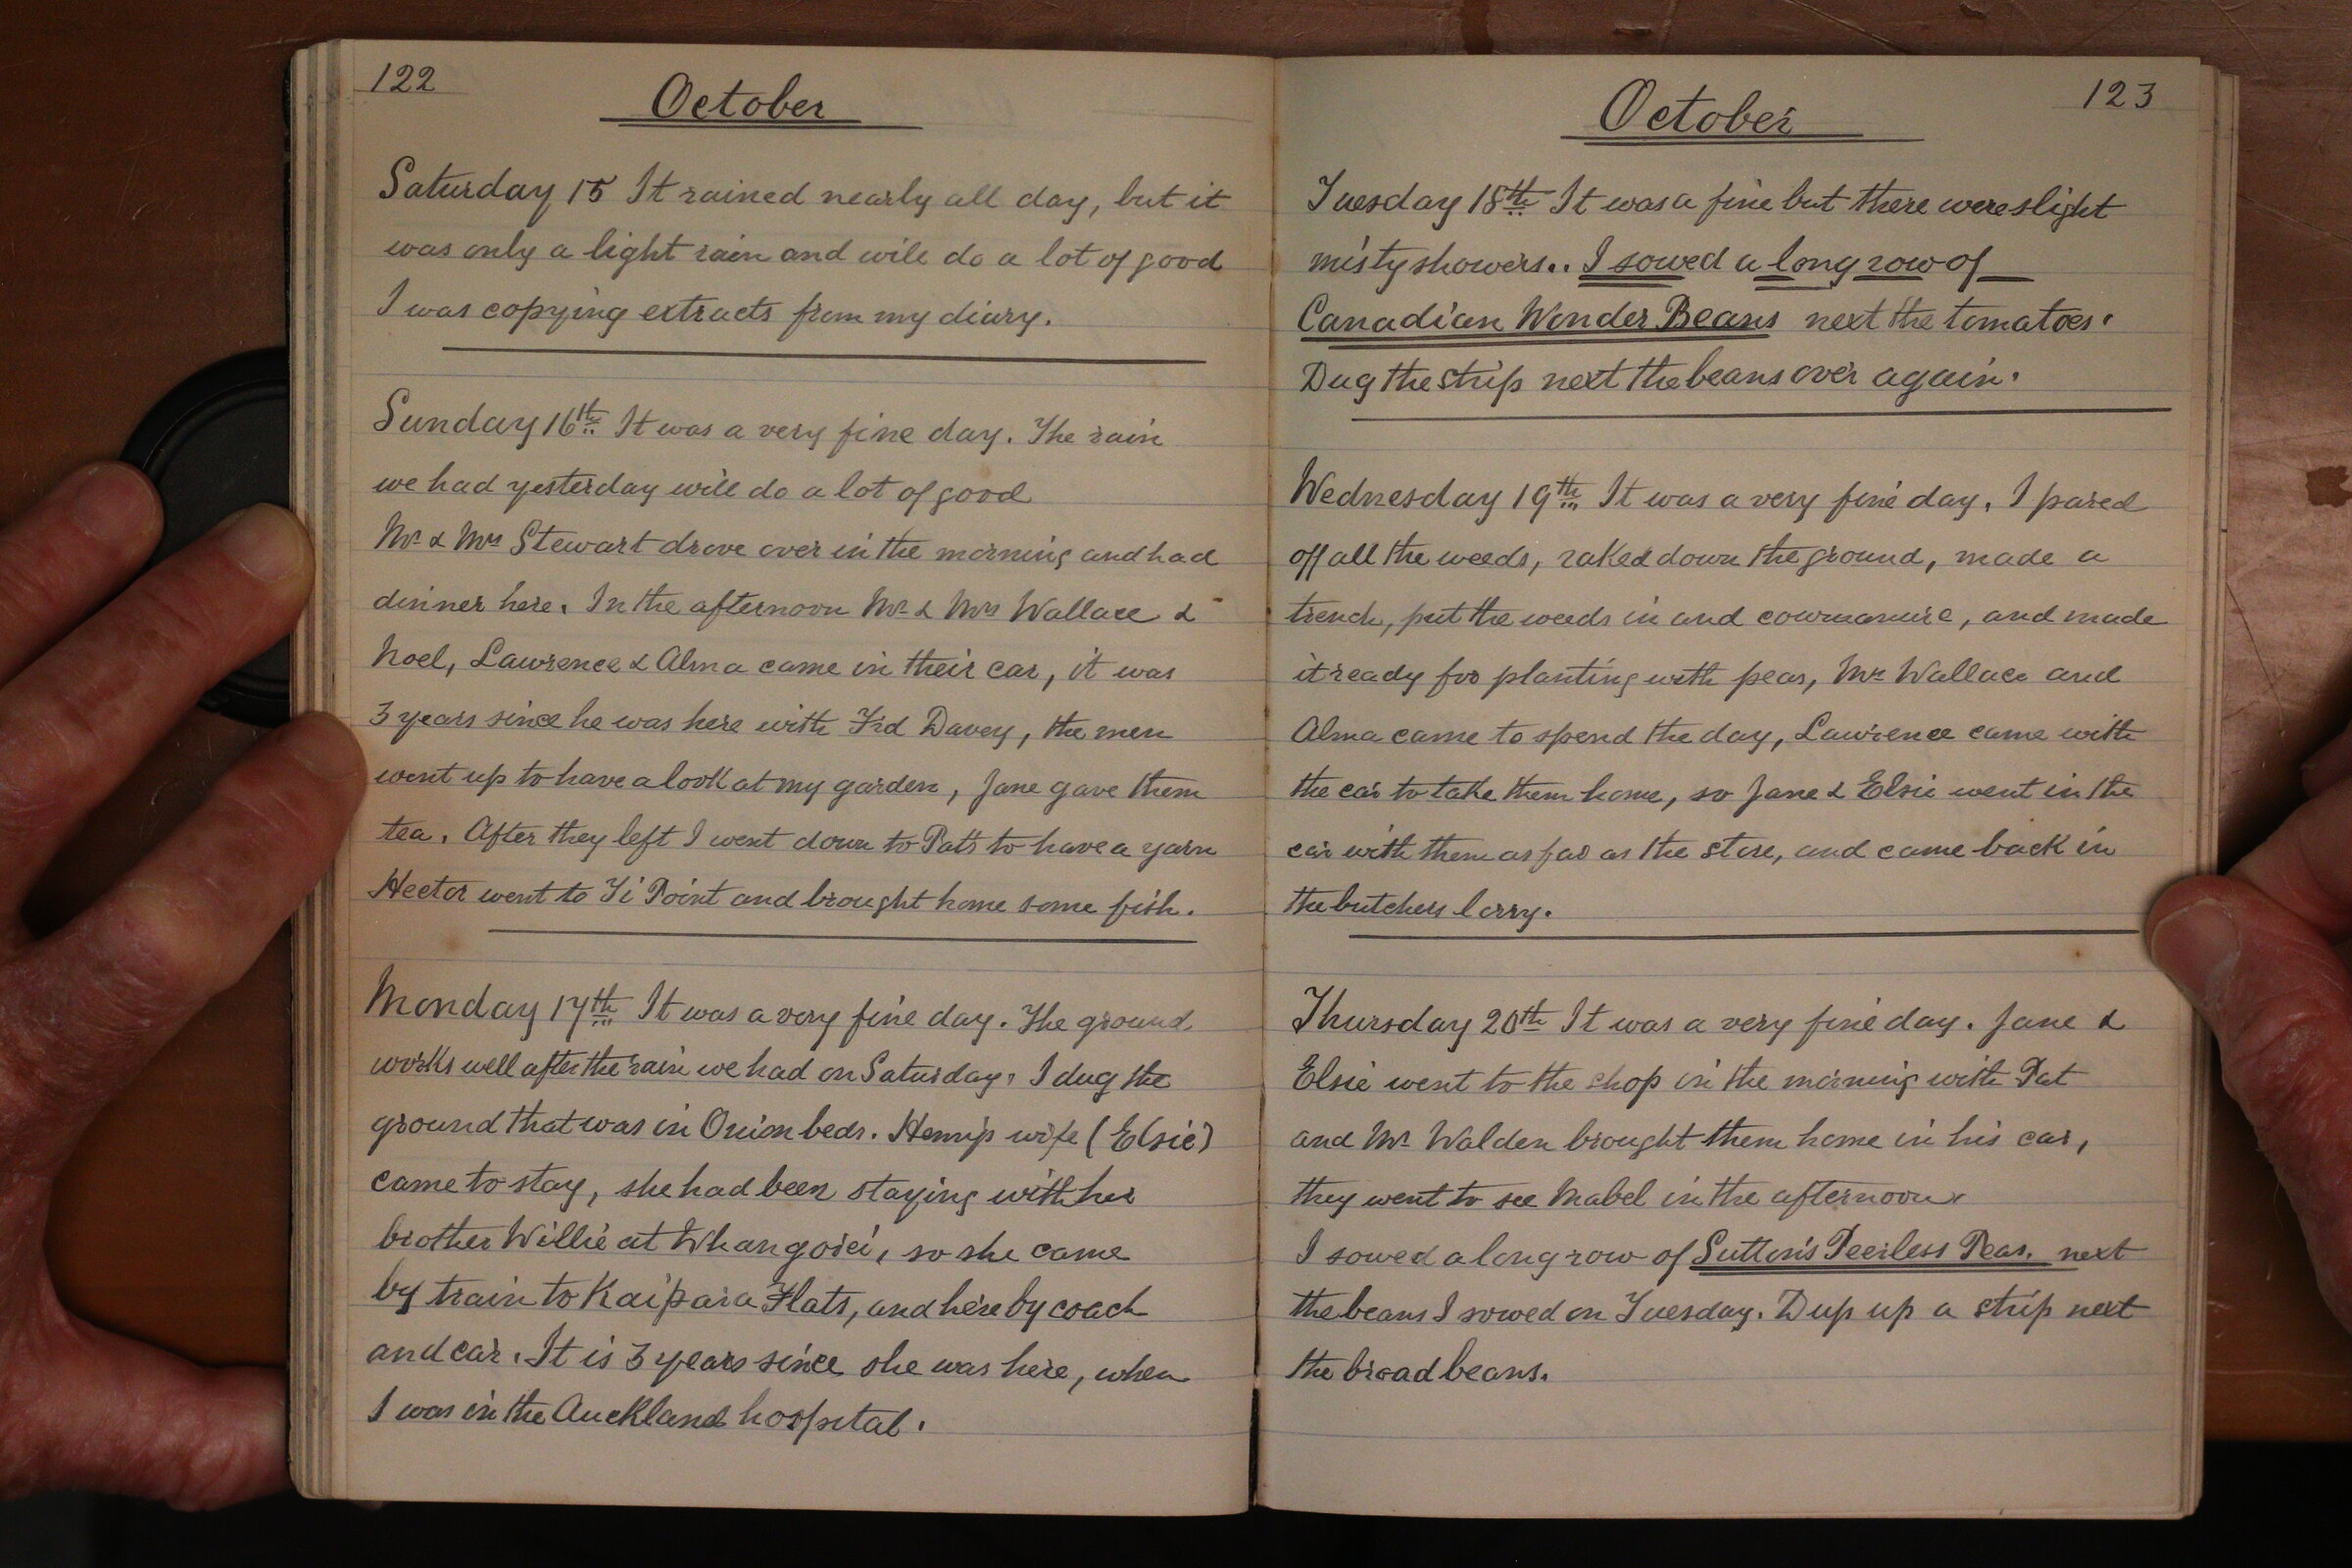 122
October
Saturday 15 It rained nearly all day, but it
was only a light rain and will do a lot of good
I was copying extracts from my diary.
Sunday 16th It was a very fine day. The rain
we had yesterday will do a lot of good
Mr & Mrs Stewart drove over in the morning and had
dinner here. In the afternoon Mr & Mrs Wallace &
Noel, Lawrence & Alma came in their car, it was
3 years since he was here with Frd Davey, the men
went up to have a look at my garden, Jane gave them
tea. After they left I went down to Pats to have a yarn
Hector went to Ti Point and brought home some fish.
Monday 17th It was a very fine day. The ground
works well after the rain we had on Saturday. I dug the
ground that was in Onion beds. Henry's wife (Elsie)
came to stay, she had been staying with her
brother Willie at Whangorei, so she came
by train to Kaipara Flats, and here by coach
and car. It is 3 years since she was here, when
I was in the Auckland hospital.
123
October
Tuesday 18th It was a fine but there were slight
misty showers.. I sowed a long row of
Canadian Wonder Beans next the tomatoes.
Dug the strip next the beans over again.
Wednesday 19th It was a very fine day. I pared
off all the weeds, raked down the ground, made a
trench, put the weeds in and cowmanure, and made
it ready for planting with peas, Mr Wallace and
Alma came to spend the day, Lawrence came with
the car to take them home, so Jane & Elsie went in the
car with them as far as the store, and came back in
the butchers lorry.
Thursday 20th It was a very fine day. Jane &
Elsie went to the shop in the morning with Pat
and Mr Walden brought them home in his car,
they went to see Mabel in the afternoon.
I sowed a long row of Sutton's Peerless Peas. next
the beans I sowed on Tuesday. Dup up a strip next
the broad beans.